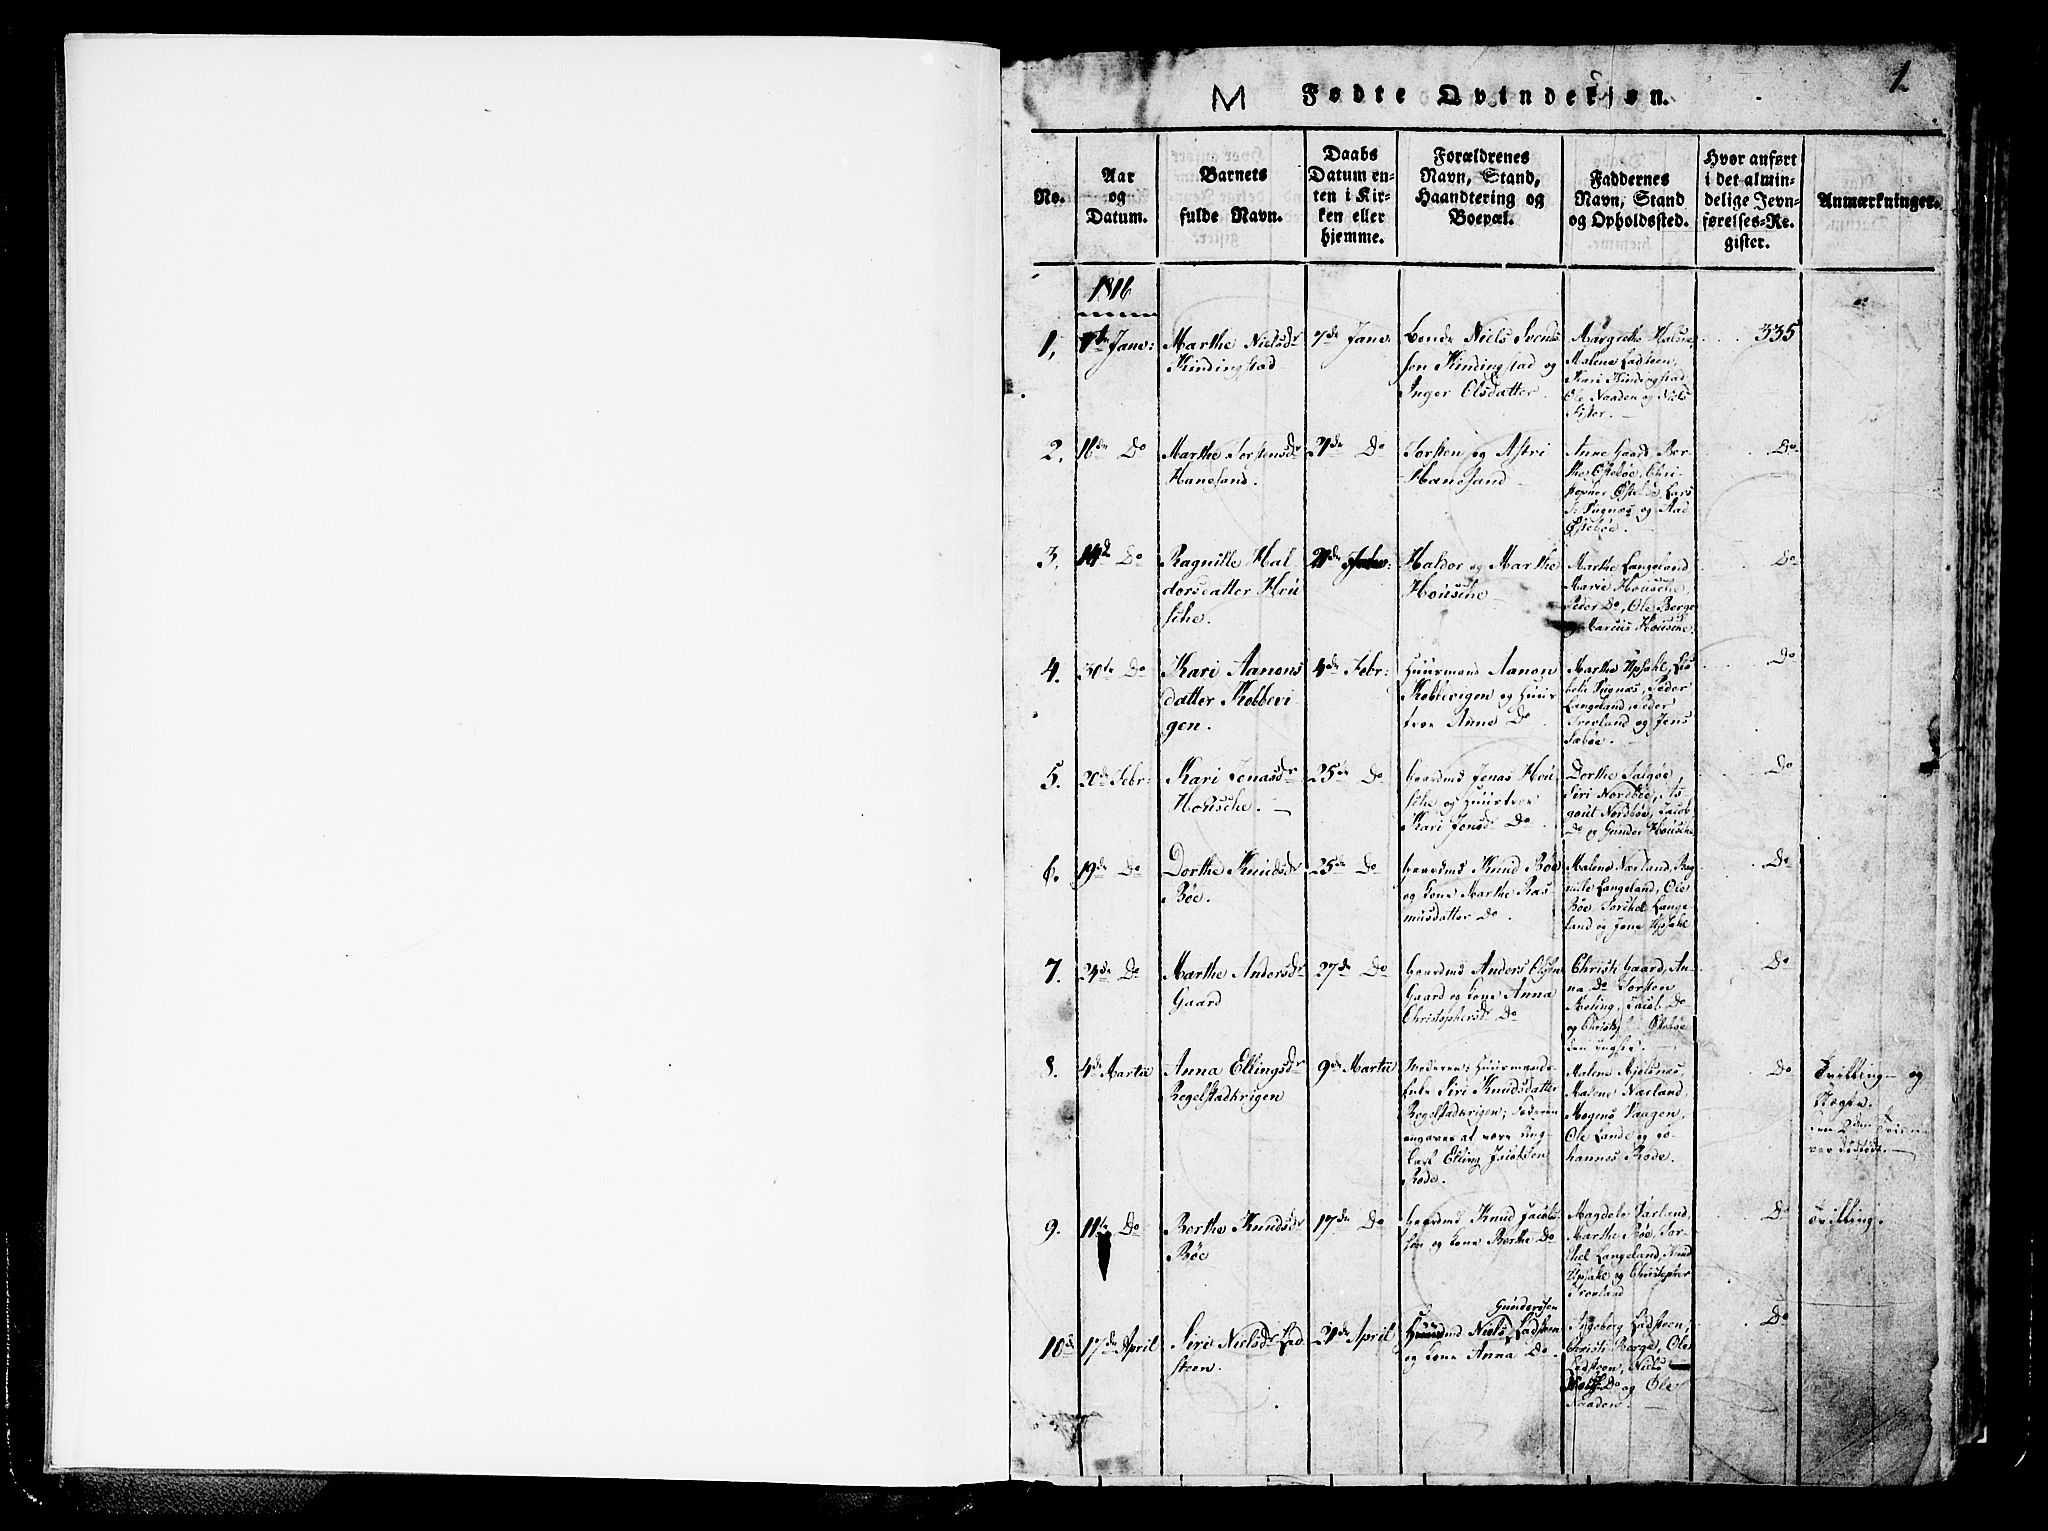 M Fødte Qvindekiøn. 1
No.
Aar
og
Datum.
Barnets
fulde Navn.
Daabs
Datum en-
ten i Kir-
ken eller
hjemme.
Forældrenes
Navn, Stand,
Haandtering og
Boepæl.
Faddernes
Navn, Stand
og Opholdssted.
Hvor anført
i det almin-
delige Jevn-
førelses-Re-
gister.
Anmærkninger.
1816
1,
1ste Janv:
Marthe Nielsdr
Kindingstad
7de Janv.
Bonde Niels Svend
sen Kindingstad og
Inger Olsdatter.
Margrethe Halsne,
Malene Ladsteen,
Kari Kindigstad,
Ole Naaden og Niels
335
2.
16de Do
Marthe Torstensdr
Hanesand.
21de Do
Torsten og Astri
Hanesand
Anne Gaard, Ber-
the Østebøe, Chri-
stopher Østebøe, Lars
Fugnæs og Aad
Østebøe.
Do
3.
14de Do
Ragnille Hal
dorsdatter Hou
sche.
21de Janv:
Haldor og Marthe
Housche
Marthe Langeland
Marie Housche,
Peder Do, Ole Berge
Marcus Housche
Do
4.
30te Do
Kari Aanons
datter Kobbevi
gen.
4de Febr:
Huusmand Aanon
Kobbevigen og Huus
troe Anne Do
Marthe Hpsahl, Lis
beth Fugnæs, Peder
Langeland, Peder
Træland og Jens
Sæbøe.
Do
5.
20de Febr:
Kari Jonasdr
Housche.
25de Do
Gaardmd Jonas Hou
sche og Huustroe
Kari Jonsdr Do
Dorthe Salgøe,
Siri Nordbøe, As
gout Nordbøe, Jacob
Do og Gunder Housche
Do
6.
19de Do
Dorthe Knudsdr
Bøe.
25de Do
Gaardmd Knud Bøe
og Kone Marthe Ras-
musdatter Do
Malene Nærland, Rag
nille Langeland, Ole
Bøe, Torchel Lange
land og Jone Hpsahl
Do
7.
24de Do
Marthe Andersdr
Gaard
27de Do
Gaardmd Anders Olsen
Gaard og Kone Anna
Christophersdr Do
Christi Gaard, An-
na Do Torsten
Meling, Jacob Do
og Østebøe
den yngre.
Do
8.
4de Martii
Anna Ellingsdr
Regelstadkrigen
9de Martii
Moderen: Huusmands
Enke Siri Knudsdatter
Regelstadkrigen; Faderen
angaves at være Ung
karl Elling Jacobsen
Rode.
Malene Mjelsnes,
Malene Nærland,
Mogens Vaagen,
Ole Lande og Jo-
hannes Rode.
Do
Tvilling og
Uægte.
den 2den Tvilling
var dødfødt.
9.
11te Do
Berthe Knudsdr
Bøe
17de Do
Gaardmd Knud Jacob
sen og Kone Berthe Do
Magdele Varland
Marthe Bøe, Tor-
chel Langeland, Knud
Hpsahl og Christopher
Træland
Do
Tvilling.
10de
17de April
Siri Nielsdr Lad
steen.
21de April
Gundersen
Huusmd Niels Ladsteen
og Kone Anna Do.
Ingeborg Ladsteen,
Christi Berge, Ole
Ladsteen, Niels
Do og Ole
Naaden.
Do